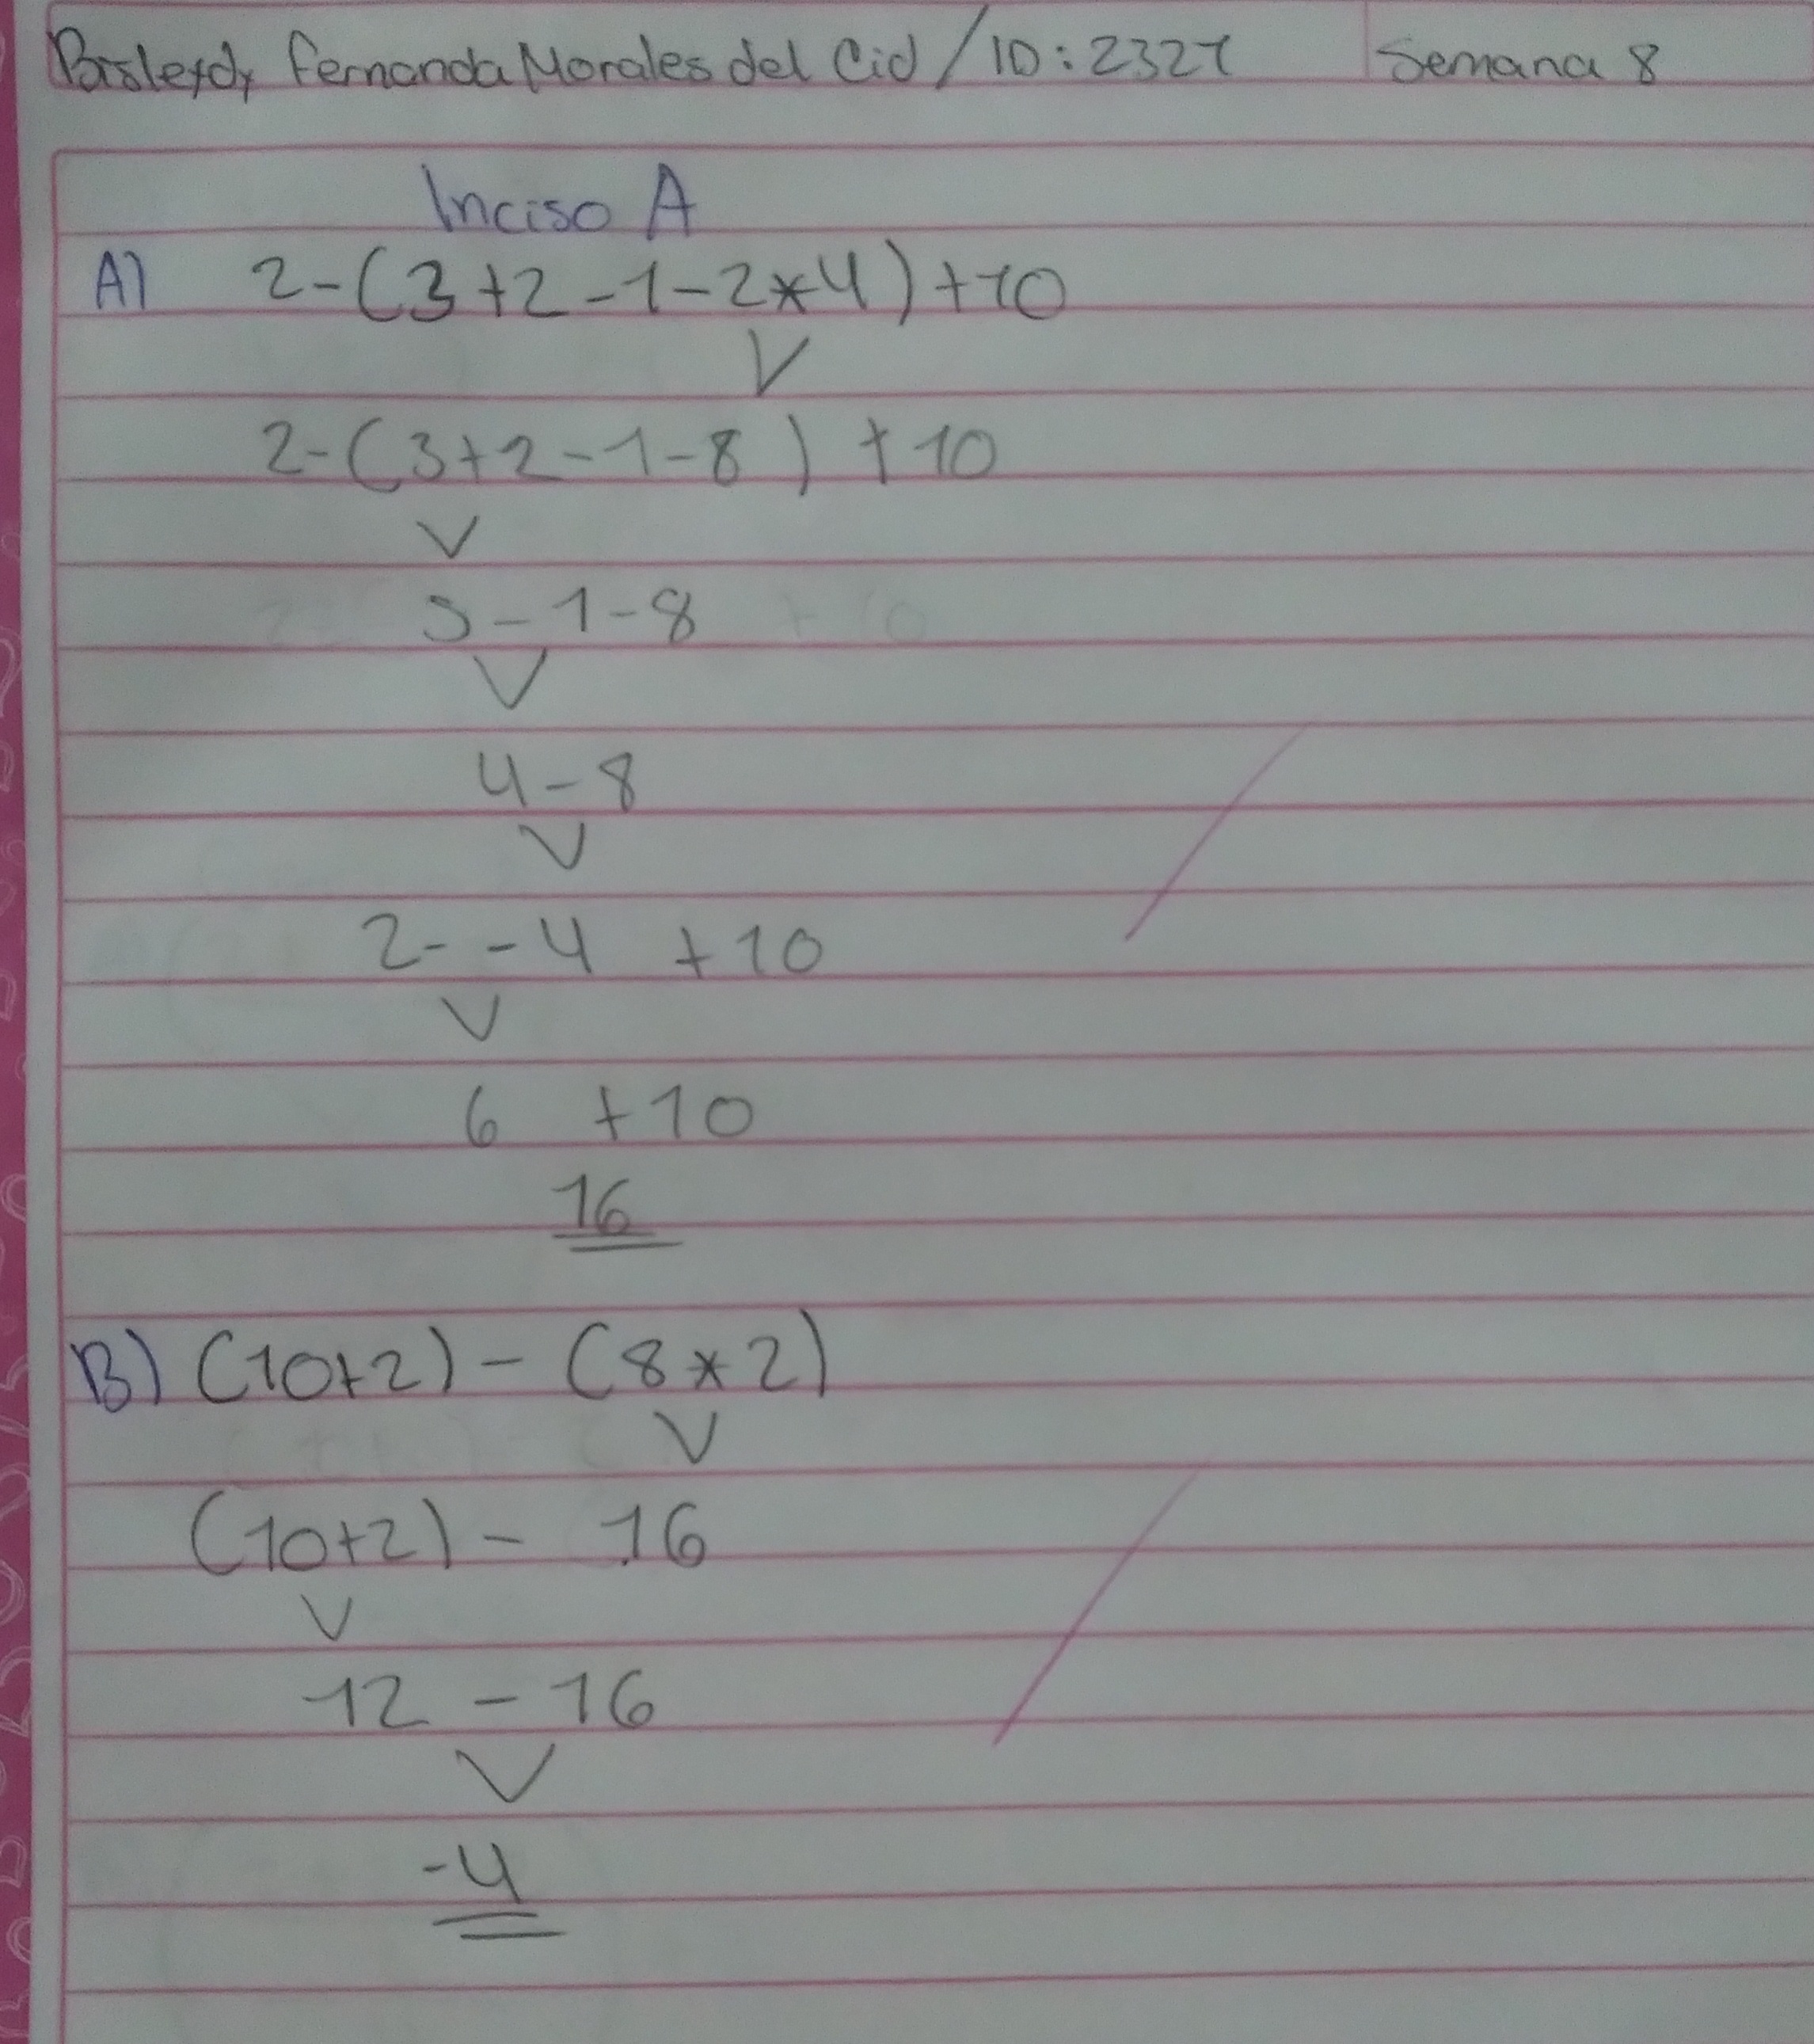 Fernanda Morales del Cid / ID: 2327 Semana 8
Inciso A
A) 2-(3+2-1-2*4)+10
V
2-(3+2-1-8) +10
V
5-1-8
V
4-8
V
2- -4 +10
V
6 +10
16
B) (10+2) - (8*2)
V
(10+2) - 16
V
12 - 16
V
-4